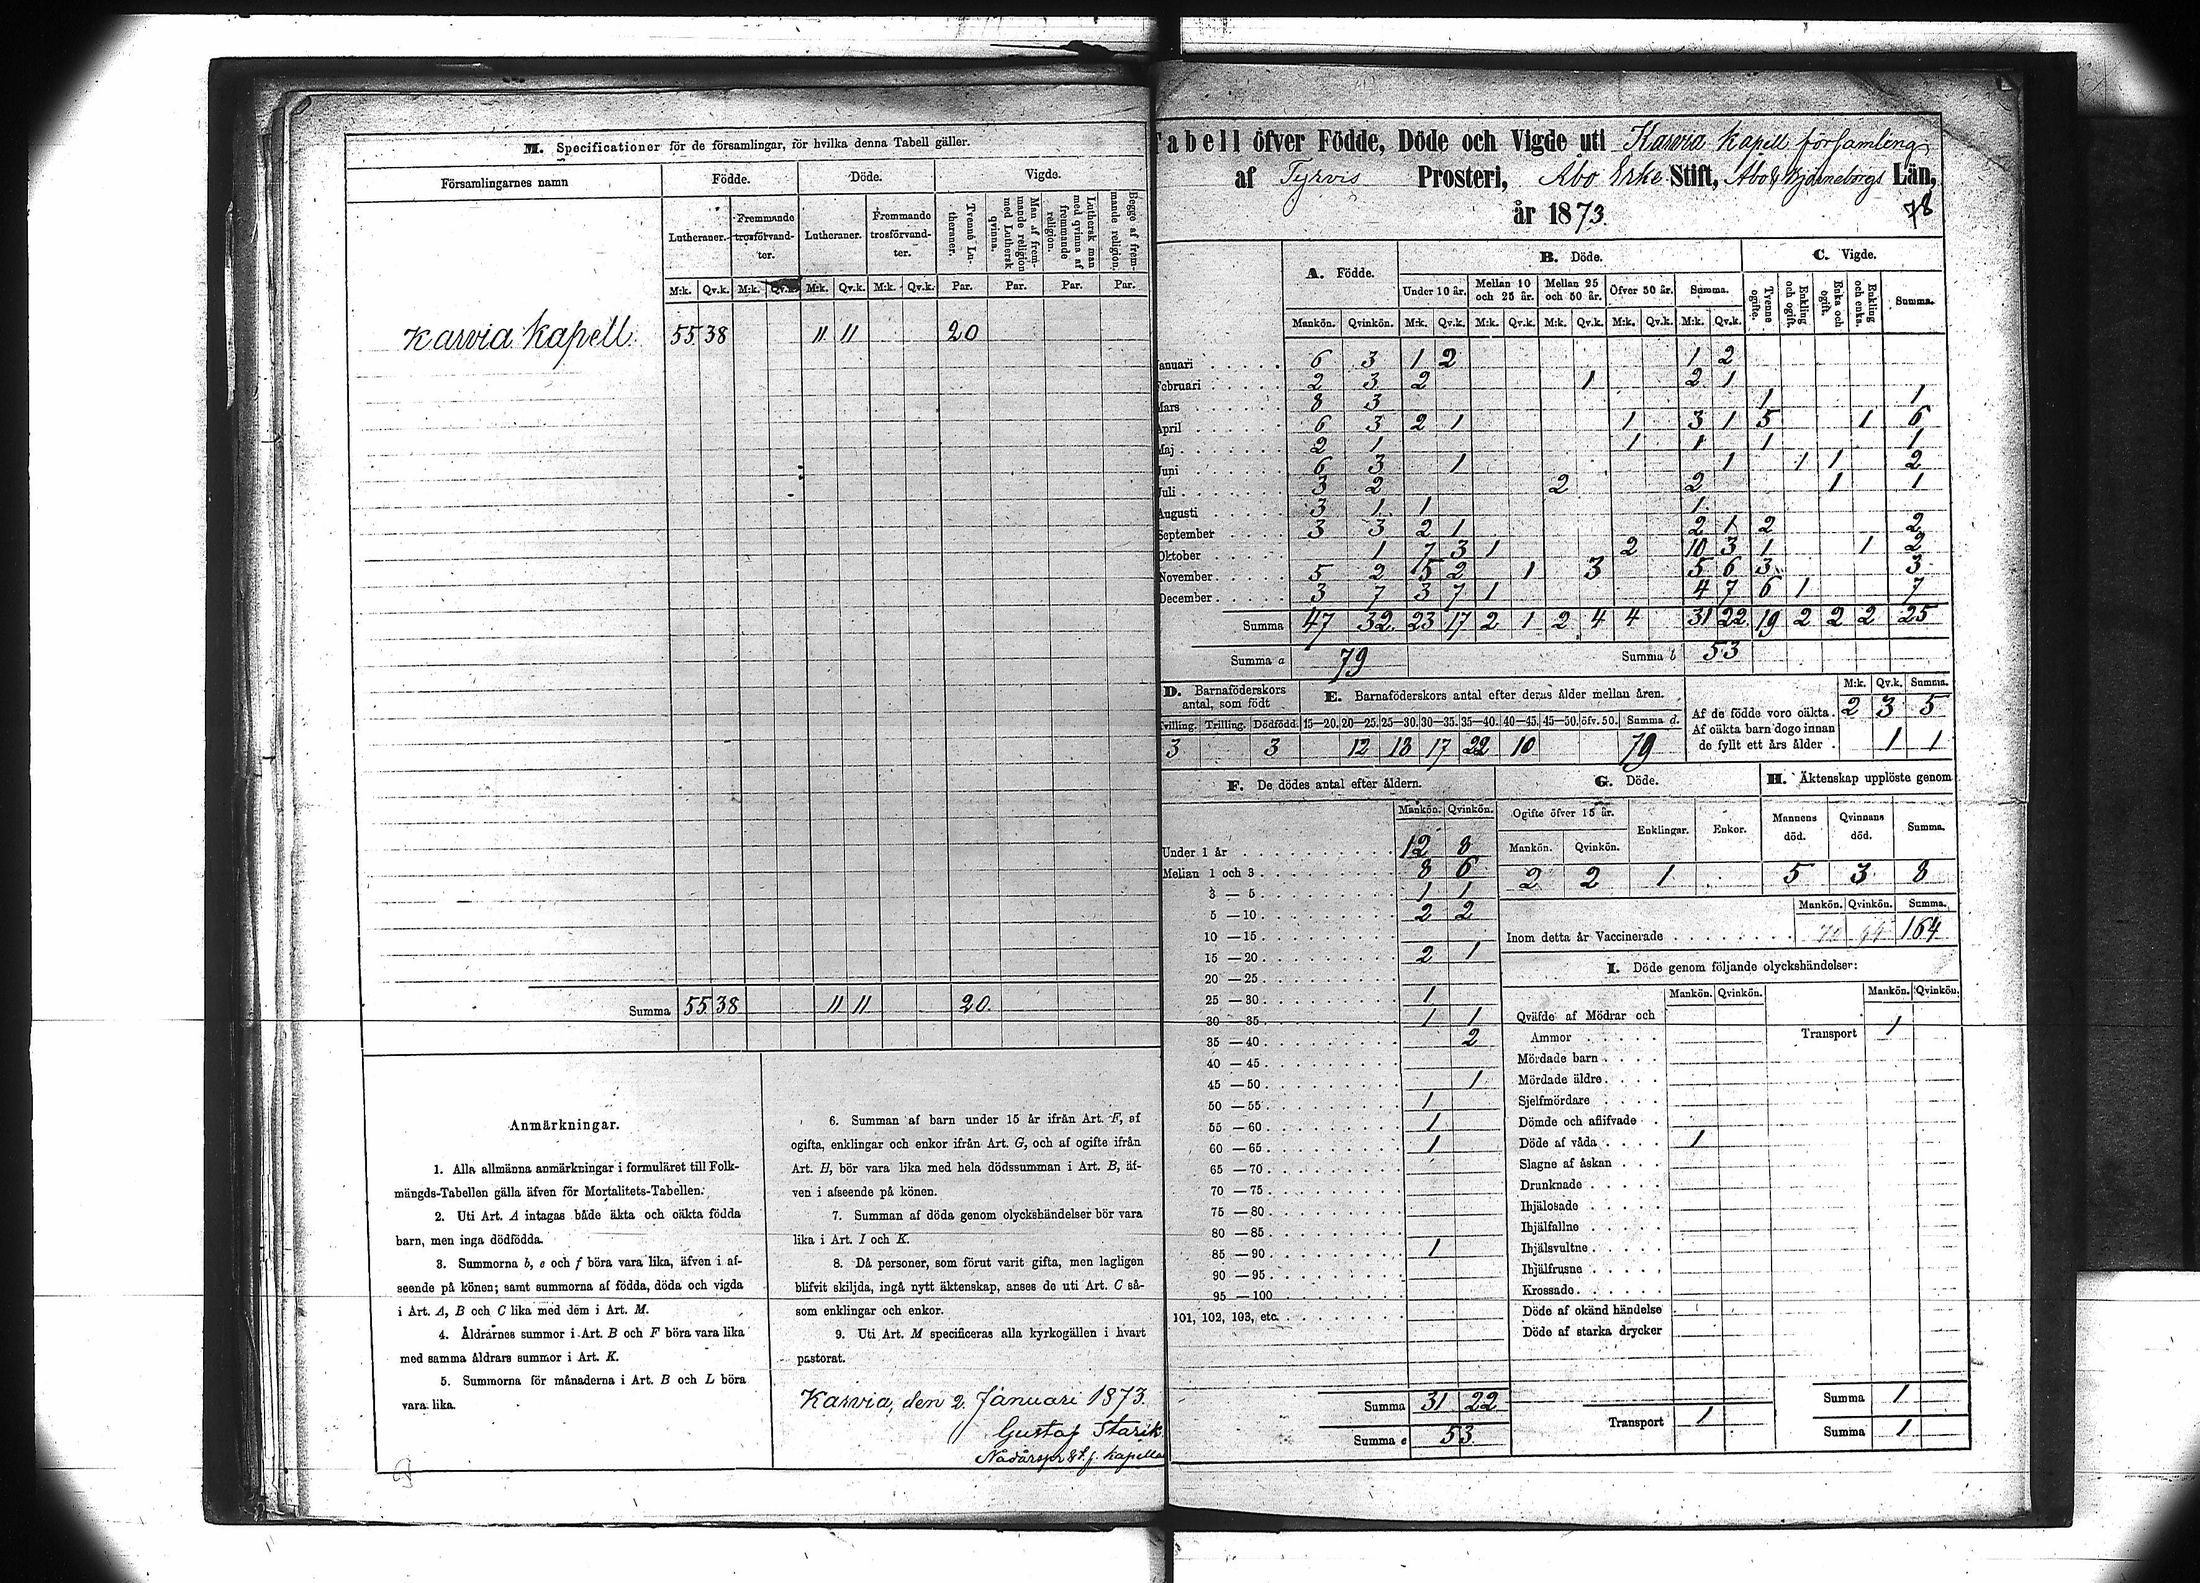 M. Specificationer för de församlingar, för hvilka denna Tabell gäller.
Församlingarnes namn Födde. Döde. Vigde.
Lutheraner. Fremmande trosförvandter. Lutheraner. Fremmande trosförvandter. Tvenne Lutheraner. Man af fremmande religion med Luthersk qvinna. Luthersk man med qvinna af fremmande religion. Begge af fremmande religion.
M:k. Qv.k. M:k. Qv.k. M:k. Qv.k. M:k. Qv.k. Par. Par. Par. Par.
Karvia Kapell. 55 38 11 11 20
Summa 55 38 11 11 20.
Anmärkningar.
1. Alla allmänna anmärkningar i formuläret till Folk-
mängds-Tabellen gälla äfven för Mortalitets-Tabellen.
2. Uti Art. A intagas både äkta och oäkta födda
barn, men inga dödfödda.
3. Summorna b, e och f böra vara lika, äfven i af-
seende på könen; samt summorna af födda, döda och vigda
i Art. A, B och C lika med dem i Art. M.
4. Åldrarnes summor i Art. B och F böra vara lika
med samma åldrars summor i Art. K.
5. Summorna för månaderna i Art. B och L böra
vara lika.
6. Summan af barn under 15 år ifrån Art. F, af
ogifta, enklingar och enkor ifrån Art. G, och af ogifte ifrån
Art. H, bör vara lika med hela dödssumman i Art. B, äf-
ven i afseende på könen.
7. Summan af döda genom olyckshändelser bör vara
lika i Art. I och K.
8. Då personer, som förut varit gifta, men lagligen
blifvit skiljda, ingå nytt äktenskap, anses de uti Art. C så-
som enklingar och enkor.
9. Uti Art. M specificeras alla kyrkogällen i hvart
pastorat.
Karvia, den 2 Januari 1873.
Gustaf Starck
Nådårspr & t.f. kapellan
Tabell öfver Födde, Döde och Vigde uti Karvia Kapell församling
af Tyrvis Prosteri, Åbo Erke Stift, Åbo & Björneborgs Län,
år 1873. 78
A. Födde. B. Döde. C. Vigde.
Under 10 år. Mellan 10 och 25 år. Mellan 25 och 50 år. Öfver 50 år. Summa. Tvenne ogifte. Enkling och ogift. Enka och ogift. Enkling och enka. Summa.
Mankön. Qvinkön. M:k. Qv.k. M:k. Qv.k. M:k. Qv.k. M:k. Qv.k. M:k. Qv.k.
Januari 6 3 1 2 1 2
Februari 2 3 2 1 2 1
Mars 8 3 1 1
April 6 3 2 1 1 3 1 5 1 6
Maj 2 1 1 1 1 1
Juni 6 3 1 1 1 1 2
Juli 3 2 2 2 1 1
Augusti 3 1 1 1
September 3 3 2 1 2 1 2 2
Oktober 1 7 3 1 2 10 3 1 1 2
November 5 2 5 2 1 3 5 6 3 3
December 3 7 3 7 1 4 7 6 1 7
Summa 47 32 23 17 2 1 2 4 4 31 22 19 2 2 2 25
Summa a 79 Summa b 53
D. Barnaföderskors antal, som födt E. Barnaföderskors antal efter deras ålder mellan åren.
Tvilling. Trilling. Dödfödd. 15—20. 20—25. 25—30. 30—35. 35—40. 40—45. 45—50. öfv. 50. Summa d.
3 3 12 18 17 22 10 79
M:k. Qv.k. Summa.
Af de födde voro oäkta. 2 3 5
Af oäkta barn dogo innan
de fyllt ett års ålder . 1 1
F. De dödes antal efter åldern.
Mankön. Qvinkön.
Under 1 år 12 8
Mellan 1 och 3 8 6
3 — 5 1 1
5 — 10 2 2
10 — 15
15 — 20 2 1
20 — 25
25 — 30 1
30 — 35 1 1
35 — 40 2
40 — 45
45 — 50 1
50 — 55 1
55 — 60 1
60 — 65 1
65 — 70
70 — 75
75 — 80
80 — 85
85 — 90 1
90 — 95
95 — 100
101, 102, 103, etc.
Summa 31 22
Summa e 53
G. Döde.
Ogifte öfver 15 år. Enklingar. Enkor.
Mankön. Qvinkön.
2 2 1
H. Äktenskap upplöste genom
Mannens död. Qvinnans död. Summa.
5 3 8
Mankön. Qvinkön. Summa.
Inom detta år Vaccinerade 164
I. Döde genom följande olyckshändelser:
Mankön. Qvinkön. Mankön. Qvinkön.
Qväfde af Mödrar och
Ammor Transport 1
Mördade barn
Mördade äldre
Sjelfmördare
Dömde och aflifvade
Döde af våda 1
Slagne af åskan
Drunknade
Ihjälosade
Ihjälfallne
Ihjälsvultne
Ihjälfrusne
Krossade
Döde af okänd händelse
Döde af starka drycker
Transport 1
Summa 1
Summa 1